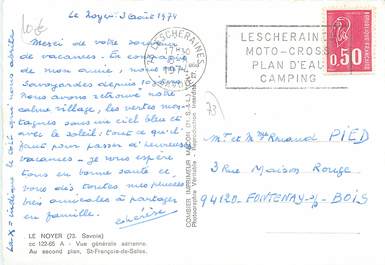 Le Noyer 3 août 1974
Merci de votre
de vacances. En compagnie
de mon amie, nous
Savoyardes depuis
Nous avons retrouvé notre
calme village, les vertes mon-
tagnes sous un ciel bleu et
avec le soleil : tout ce qu'il
faut pour passer d'heureuses
vacances - je vous espère
tous en bonne santé et
vous dis toutes mes pensées
très amicales à partager
en famille.
La x indique le toit qui nous abrite
LE NOYER (73. Savoie)
cc 122-65 A - Vue générale aérienne.
Au second plan, St-François-de-Sales.
COMBIER IMPRIMEUR MACON
Photographie Véritable - Reproduction interdite
LESCHERAINES
17 H 30
1974
SAVOIE
LESCHERAINES
MOTO-CROSS
PLAN D'EAU
CAMPING
0,50
73
Mr et Mme PIED
3 Rue Maison Rouge
94120 - FONTENAY-s/-BOIS